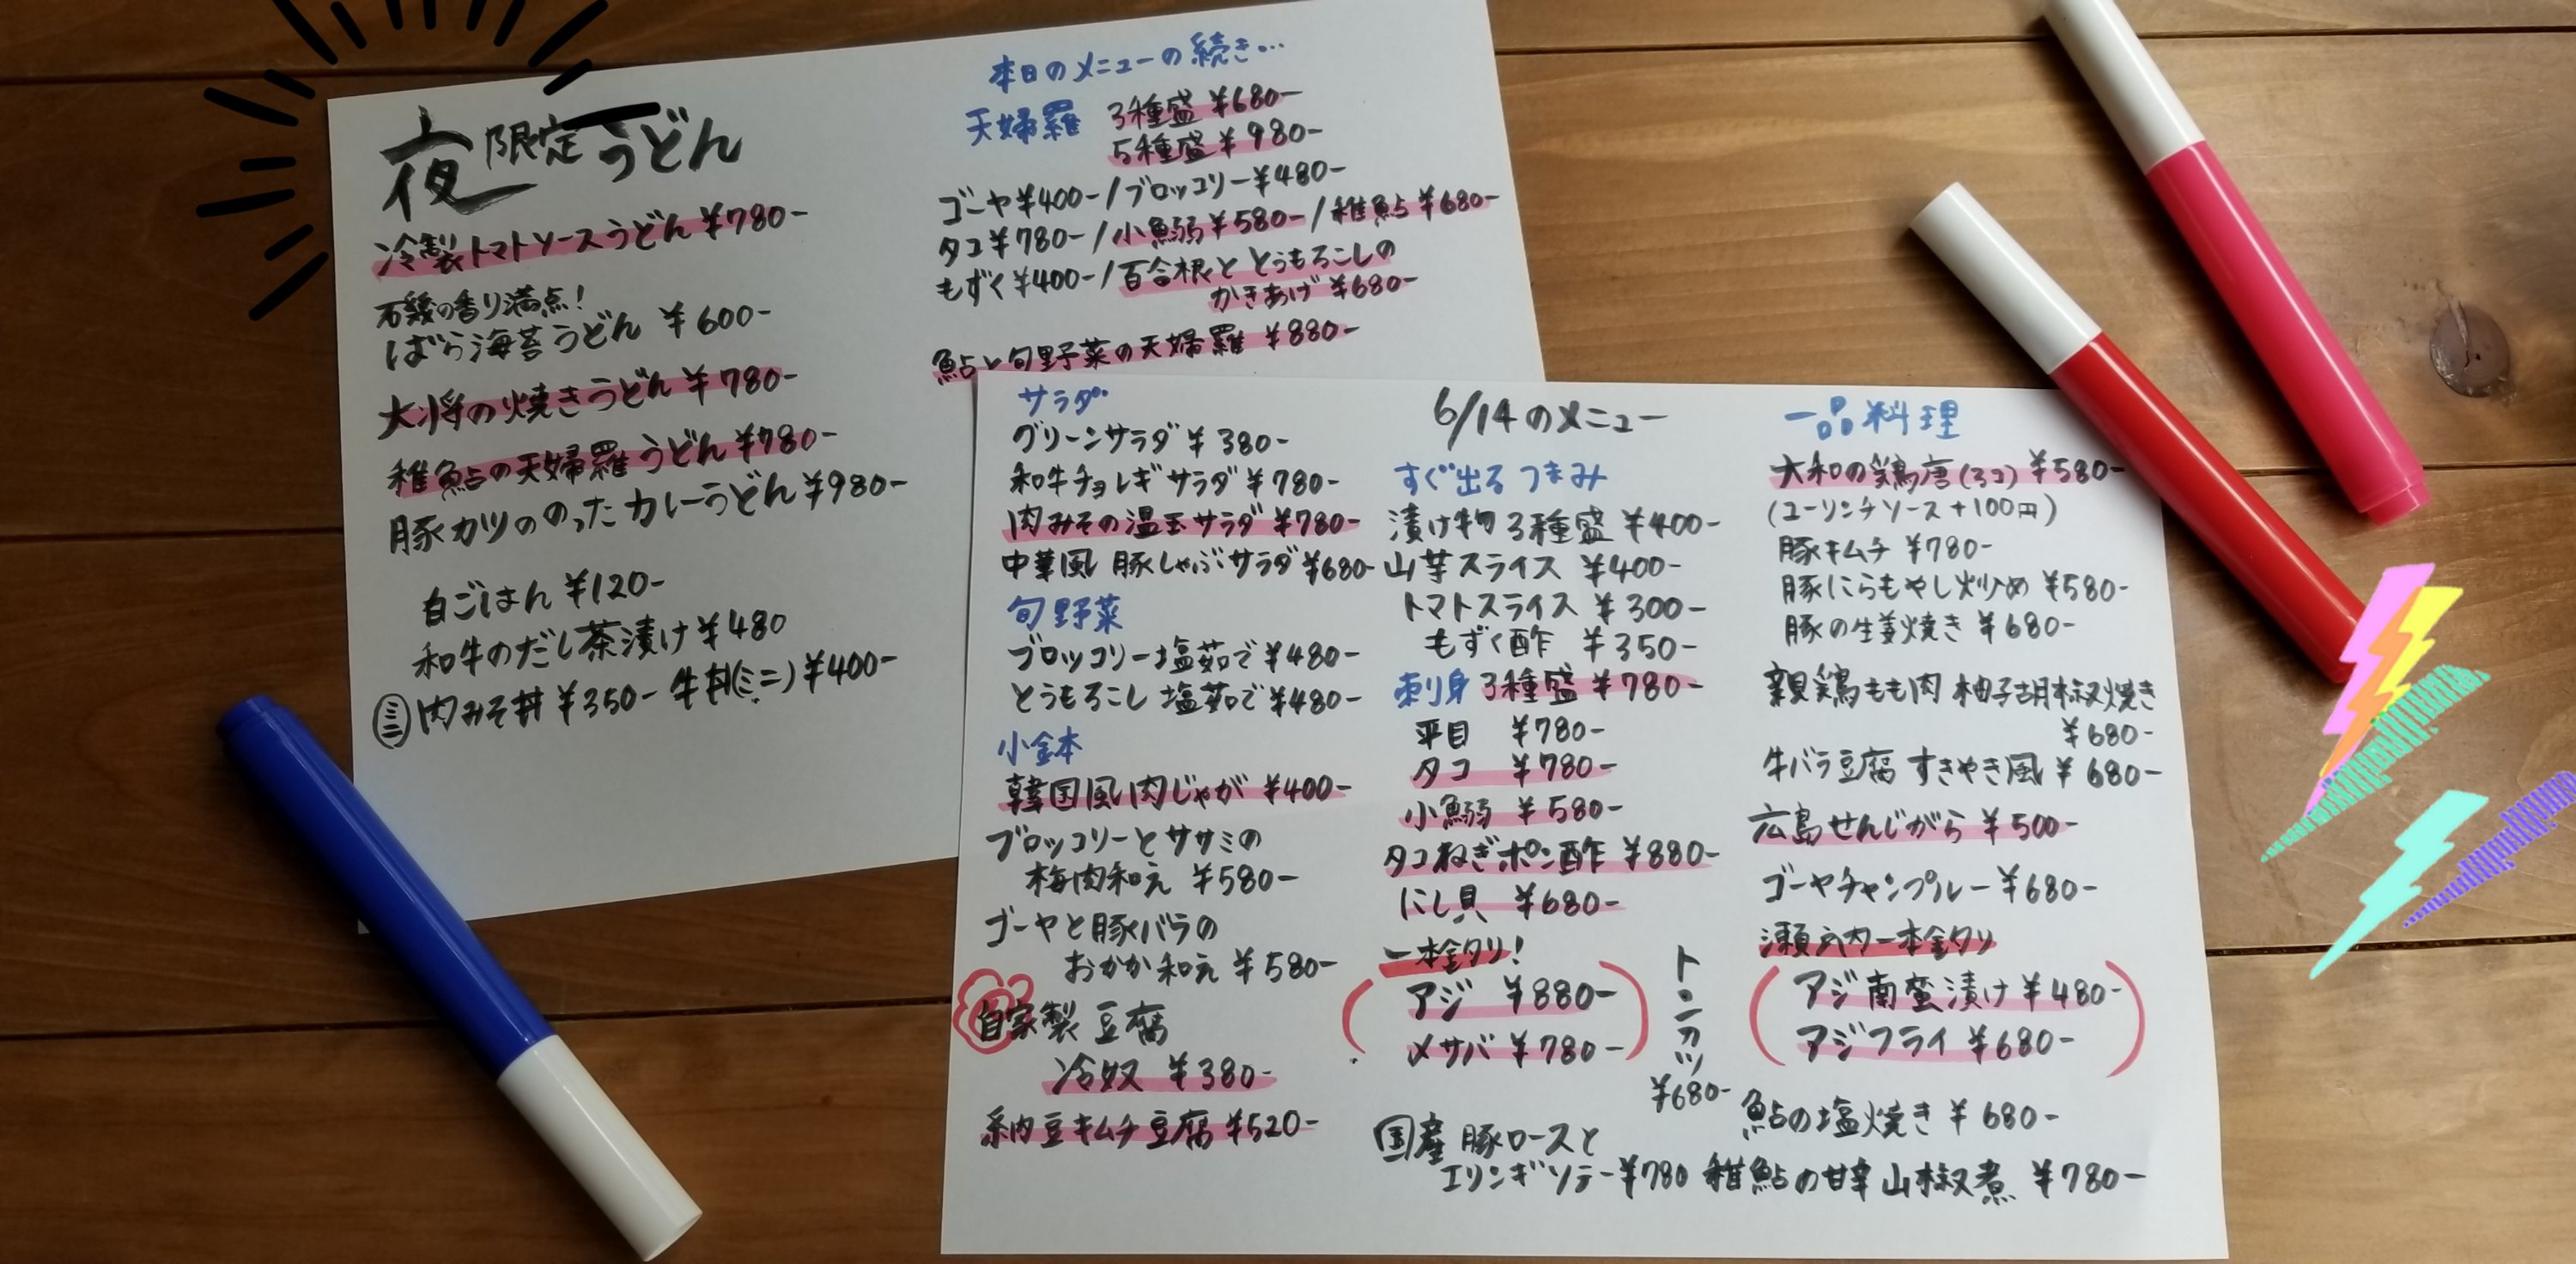 夜限定うどん
冷製トマトソースうどん ¥780-
石幾の香り満点!
ばら海苔うどん ¥600-
大将の焼きうどん ¥780-
稚鮎の天婦羅うどん ¥780-
豚カツののったカレーうどん ¥980-
白ごはん ¥120-
和牛のだし茶漬け ¥480
ミニ 肉みそ丼 ¥350- 牛丼(ミニ) ¥400-
本日のメニューの続き…
天婦羅 3種盛 ¥680-
5種盛 ¥980-
ゴーヤ ¥400- / ブロッコリー ¥480-
タコ ¥780- / 小鰯 ¥580- / 稚鮎 ¥680-
もずく ¥400- / 百合根ととうもろこしの
かきあげ ¥680-
鮎と旬野菜の天婦羅 ¥880-
6/14のメニュー
サラダ
グリーンサラダ ¥380-
和牛チョレギサラダ ¥780-
肉みその温玉サラダ ¥780-
中華風 豚しゃぶサラダ ¥680-
旬野菜
ブロッコリー塩茹で ¥480-
とうもろこし 塩茹で ¥480-
小鉢
韓国風肉じゃが ¥400-
ブロッコリーとササミの
梅肉和え ¥580-
ゴーヤと豚バラの
おかか和え ¥580-
自家製 豆腐
冷奴 ¥380-
納豆キムチ豆腐 ¥520-
すぐ出るつまみ
漬け物3種盛 ¥400-
山芋スライス ¥400-
トマトスライス ¥300-
もずく酢 ¥350-
刺身 3種盛 ¥780-
平目 ¥780-
タコ ¥780-
小鰯 ¥580-
タコねぎポン酢 ¥880-
にし貝 ¥680-
一本釣り!
アジ ¥880-
〆サバ ¥780-
トンカツ
¥680-
国産 豚ロースと
エリンギソテー ¥780
一品料理
大和の鶏唐(3コ) ¥580-
(ユーリンチソース+100円)
豚キムチ ¥780-
豚にらもやし炒め ¥580-
豚の生姜焼き ¥680-
親鶏もも肉 柚子胡椒焼き
¥680-
牛バラ豆腐 すきやき風 ¥680-
広島せんじがら ¥500-
ゴーヤチャンプルー ¥680-
瀬戸内一本釣り
アジ南蛮漬け ¥480-
アジフライ ¥680-
鮎の塩焼き ¥680-
稚鮎の甘辛山椒煮 ¥780-